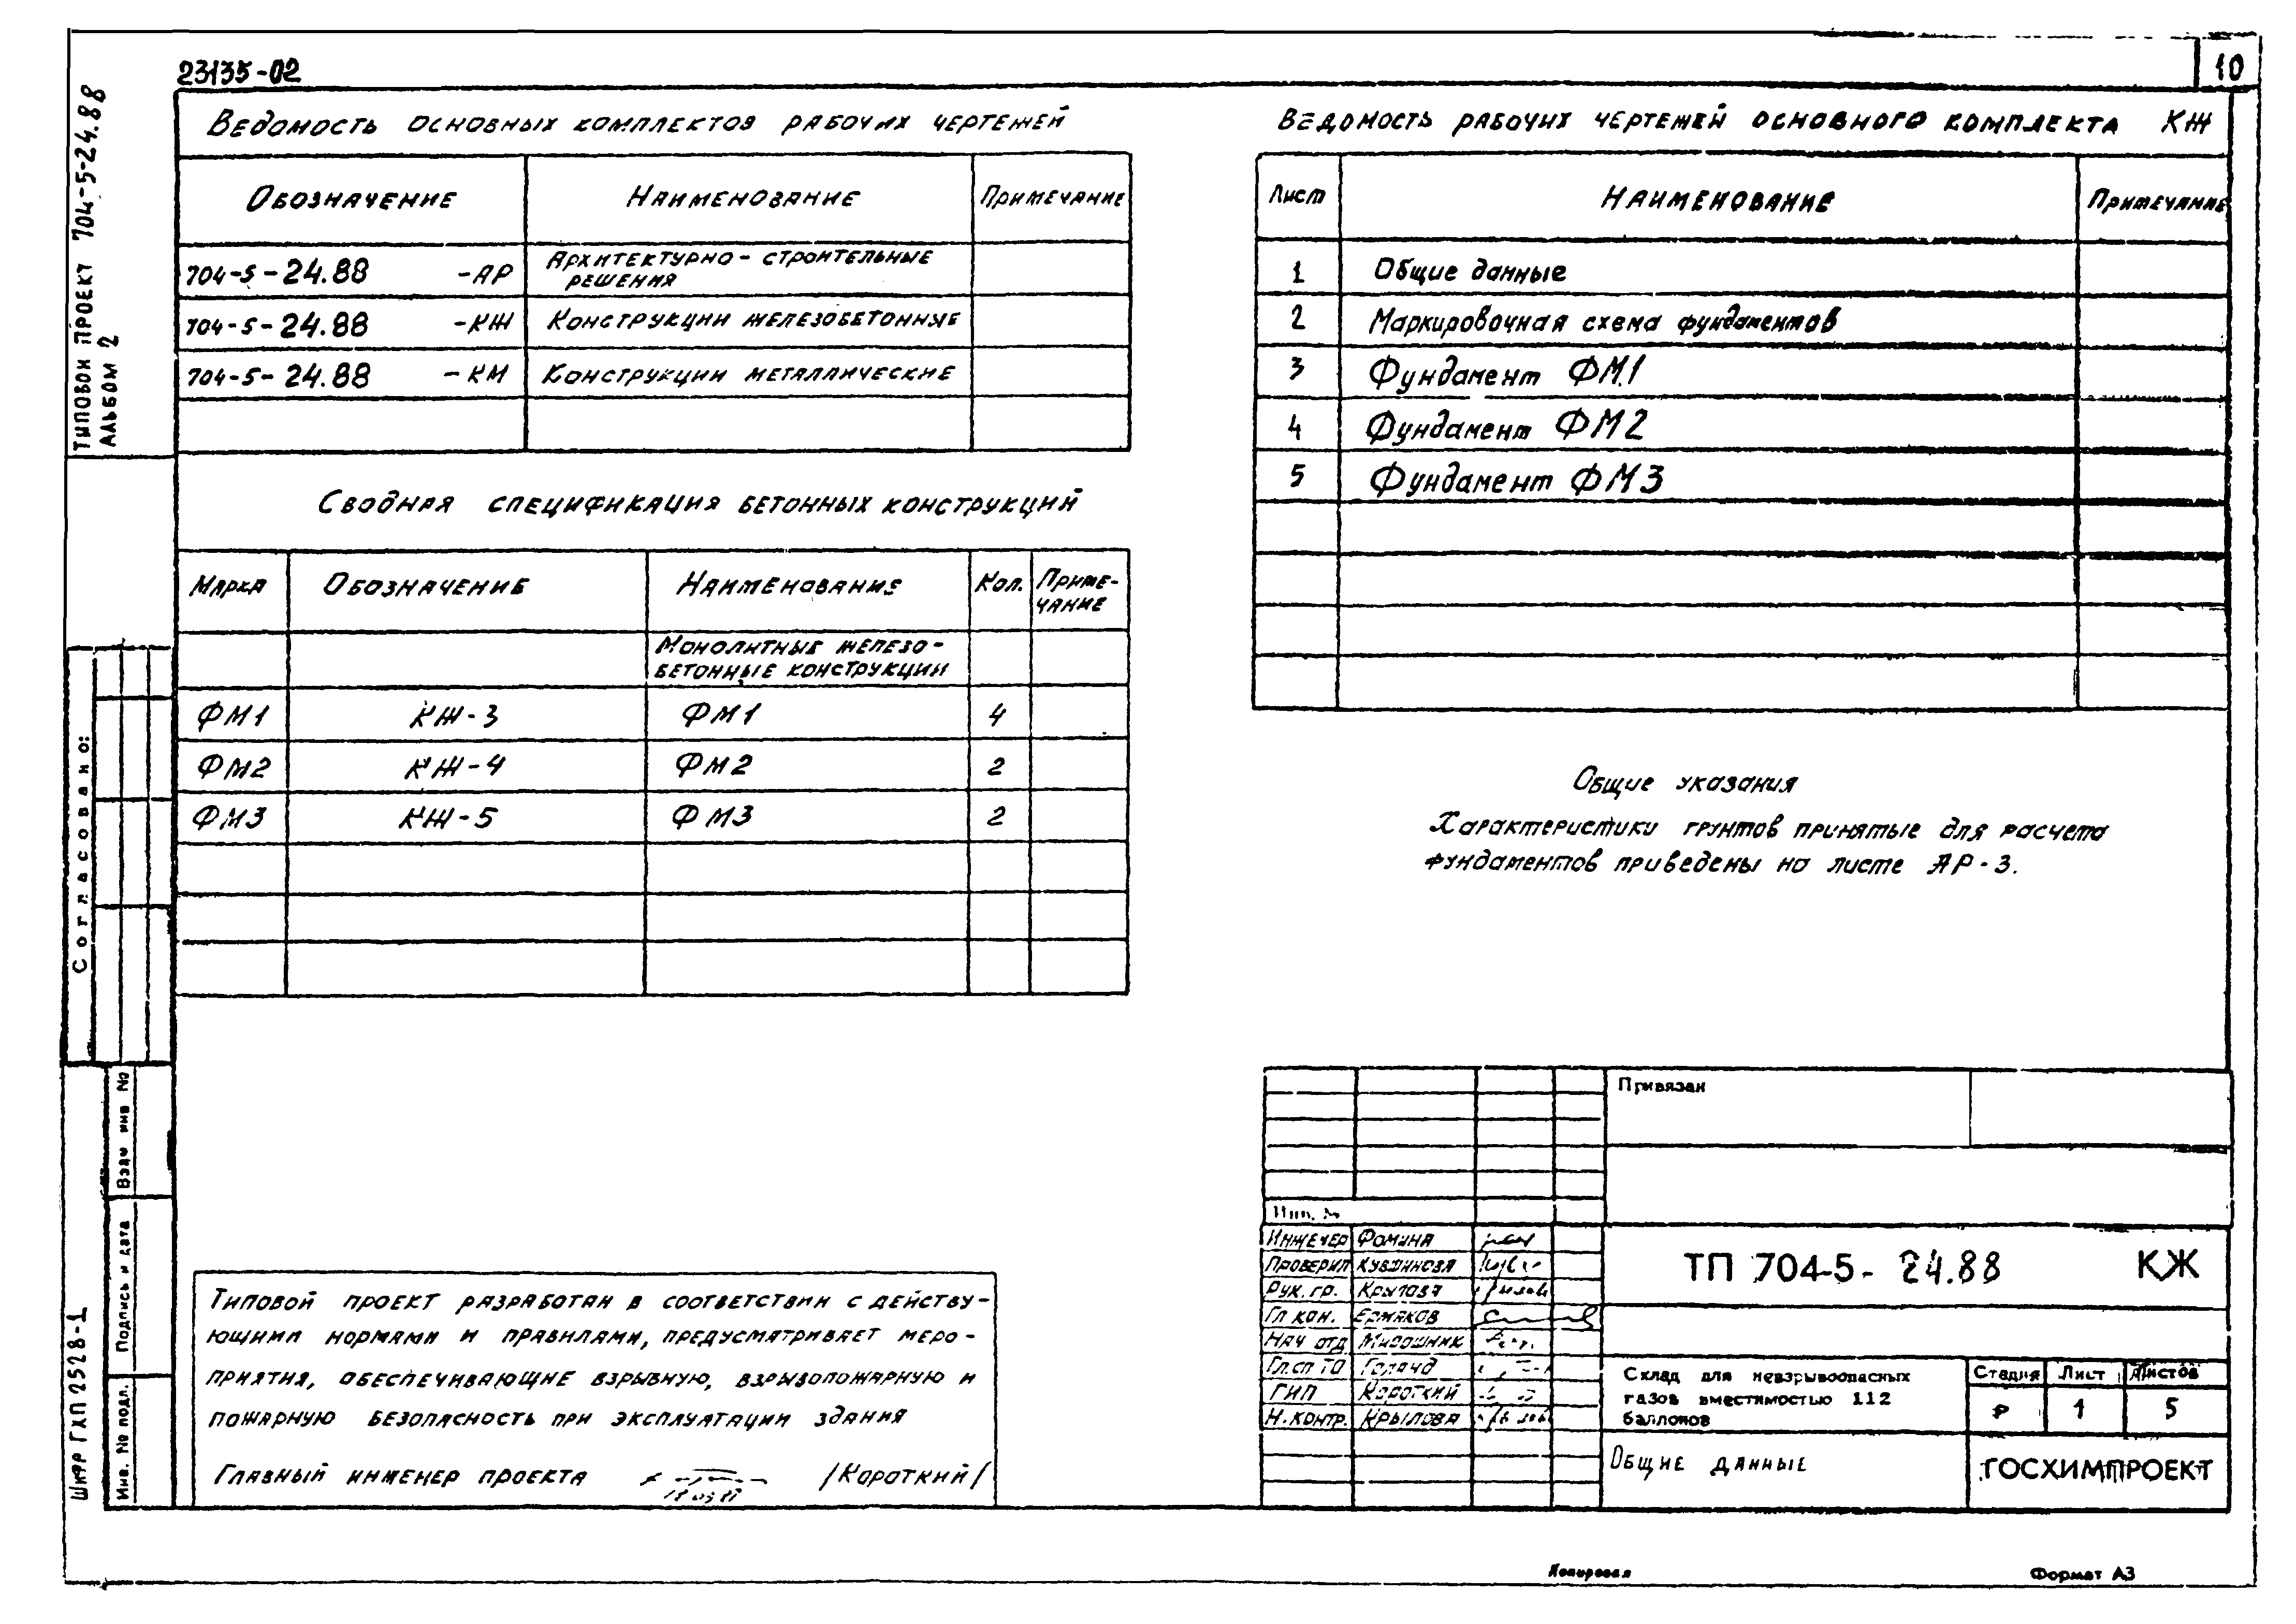 23135-02
10
ТИПОВОЙ ПРОЕКТ 704-5-24.88
АЛЬБОМ 2
Ведомость основных комплектов рабочих чертежей
Обозначение Наименование Примечание
704-5-24.88 -АР Архитектурно-строительные
решения
704-5-24.88 -КЖ Конструкции железобетонные
704-5-24.88 -КМ Конструкции металлические
Сводная спецификация бетонных конструкций
Марка Обозначение Наименования Кол. Приме-
чание
Монолитные железо-
бетонные конструкции
ФМ1 КЖ-3 ФМ1 4
ФМ2 КЖ-4 ФМ2 2
ФМ3 КЖ-5 ФМ3 2
Ведомость рабочих чертежей основного комплекта КЖ
Лист Наименование Примечание
1 Общие данные
2 Маркировочная схема фундаментов
3 Фундамент ФМ1
4 Фундамент ФМ2
5 Фундамент ФМ3
Общие указания
Характеристики грунтов принятые для расчета
фундаментов приведены на листе АР-3.
Согласовано:
Взам инв №
Подпись и дата
Инв. № подл.
Шифр ГХП 2528-1
Типовой проект разработан в соответствии с действу-
ющими нормами и правилами, предусматривает меро-
приятия, обеспечивающие взрывную, взрывопожарную и
пожарную безопасность при эксплуатации здания
Главный инженер проекта /Короткий/
Привязан
Инв. №
Инженер Фомина
Проверил
Рук. гр. Крылова
Гл кон. Ермаков
Нач отд Мирошник
Гл.сп ТО
ГИП Короткий
Н.контр. Крылова
ТП 704-5-24.88 КЖ
Склад для невзрывоопасных
газов вместимостью 112
баллонов
Стадия Лист Листов
Р 1 5
Общие данные
ГОСХИМПРОЕКТ
Копировал
Формат А3